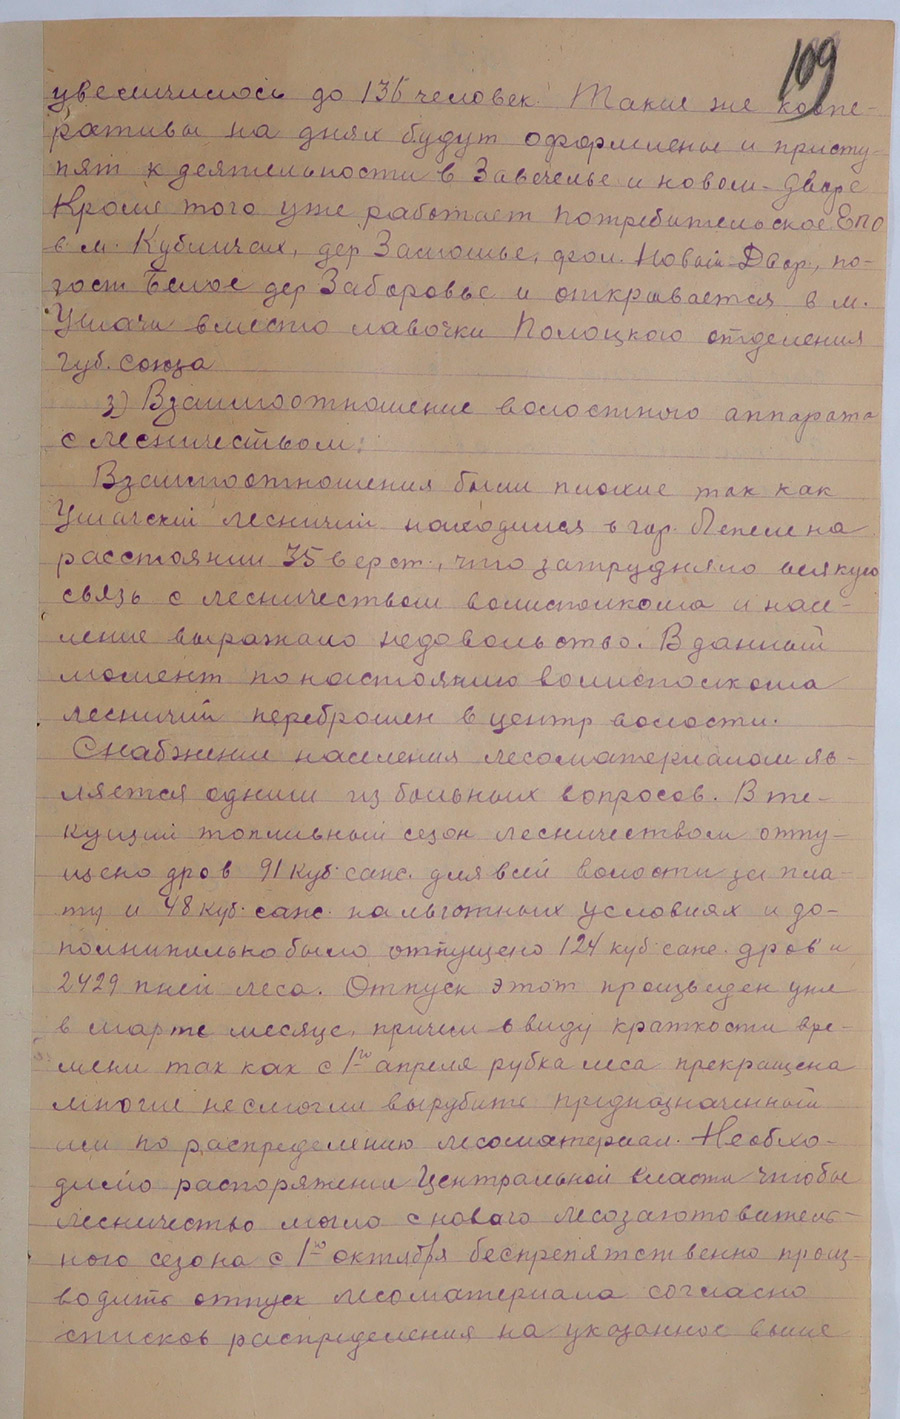 109
увеличилось до 136 человек. Такие же коопе-
ративы на днях будут оформлены и присту-
пят к деятельности в Завечелье и новом-Дворе
Кроме того уже работает потребительское ЕПО
в м. Кубличах, дер Замошье, фол. Новый-Двор, по-
гост Белое дер Заборовье и открывается в м.
Ушачи вместо лавочки Полоцкого отделения
Губ. союза
3) Взаимоотношение волостного аппарата
с лесничеством:
Взаимоотношения были плохие так как
Ушачский лесничий находился в гор. Лепеле на
расстоянии 35 верст, что затрудняло всякую
связь с лесничеством волисполкома и насе-
ление выражало недовольство. В данный
момент по настоянию волисполкома
лесничий переброшен в центр волости.
Снабжение населения лесоматериалом яв-
ляется одним из больных вопросов. В те-
кущий топливный сезон лесничеством отпу-
щено дров 91 куб. саж. для всей волости за пла-
ту и 48 куб. саж. на льготных условиях и до-
полнительно было отпущено 124 куб. саже. дров и
2429 пней леса. Отпуск этот произведен уже
в марте месяце, причем ввиду краткости вре-
мени так как с 1го апреля рубка леса прекращена
многие не смогли вырубить предназначенный
им по распределению лесоматериал. Необхо-
димо распоряжение Центральной власти чтобы
лесничество могло с нового лесозаготовитель-
ного сезона с 1го октября беспрепятственно произ-
водить отпуск лесоматериала согласно
списков распределения на указанное выше